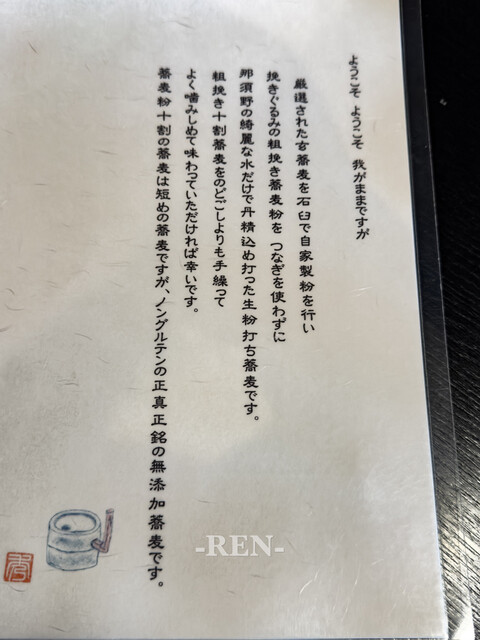 ようこそ ようこそ 我がままですが
厳選された玄蕎麦を石臼で自家製粉を行い
挽きぐるみの粗挽き蕎麦粉を つなぎを使わずに
那須野の綺麗な水だけで丹精込め打った生粉打ち蕎麦です。
粗挽き十割蕎麦をのどごしよりも手繰って
よく嚙みしめて味わっていただければ幸いです。
蕎麦粉十割の蕎麦は短めの蕎麦ですが、ノングルテンの正真正銘の無添加蕎麦です。
-REN-